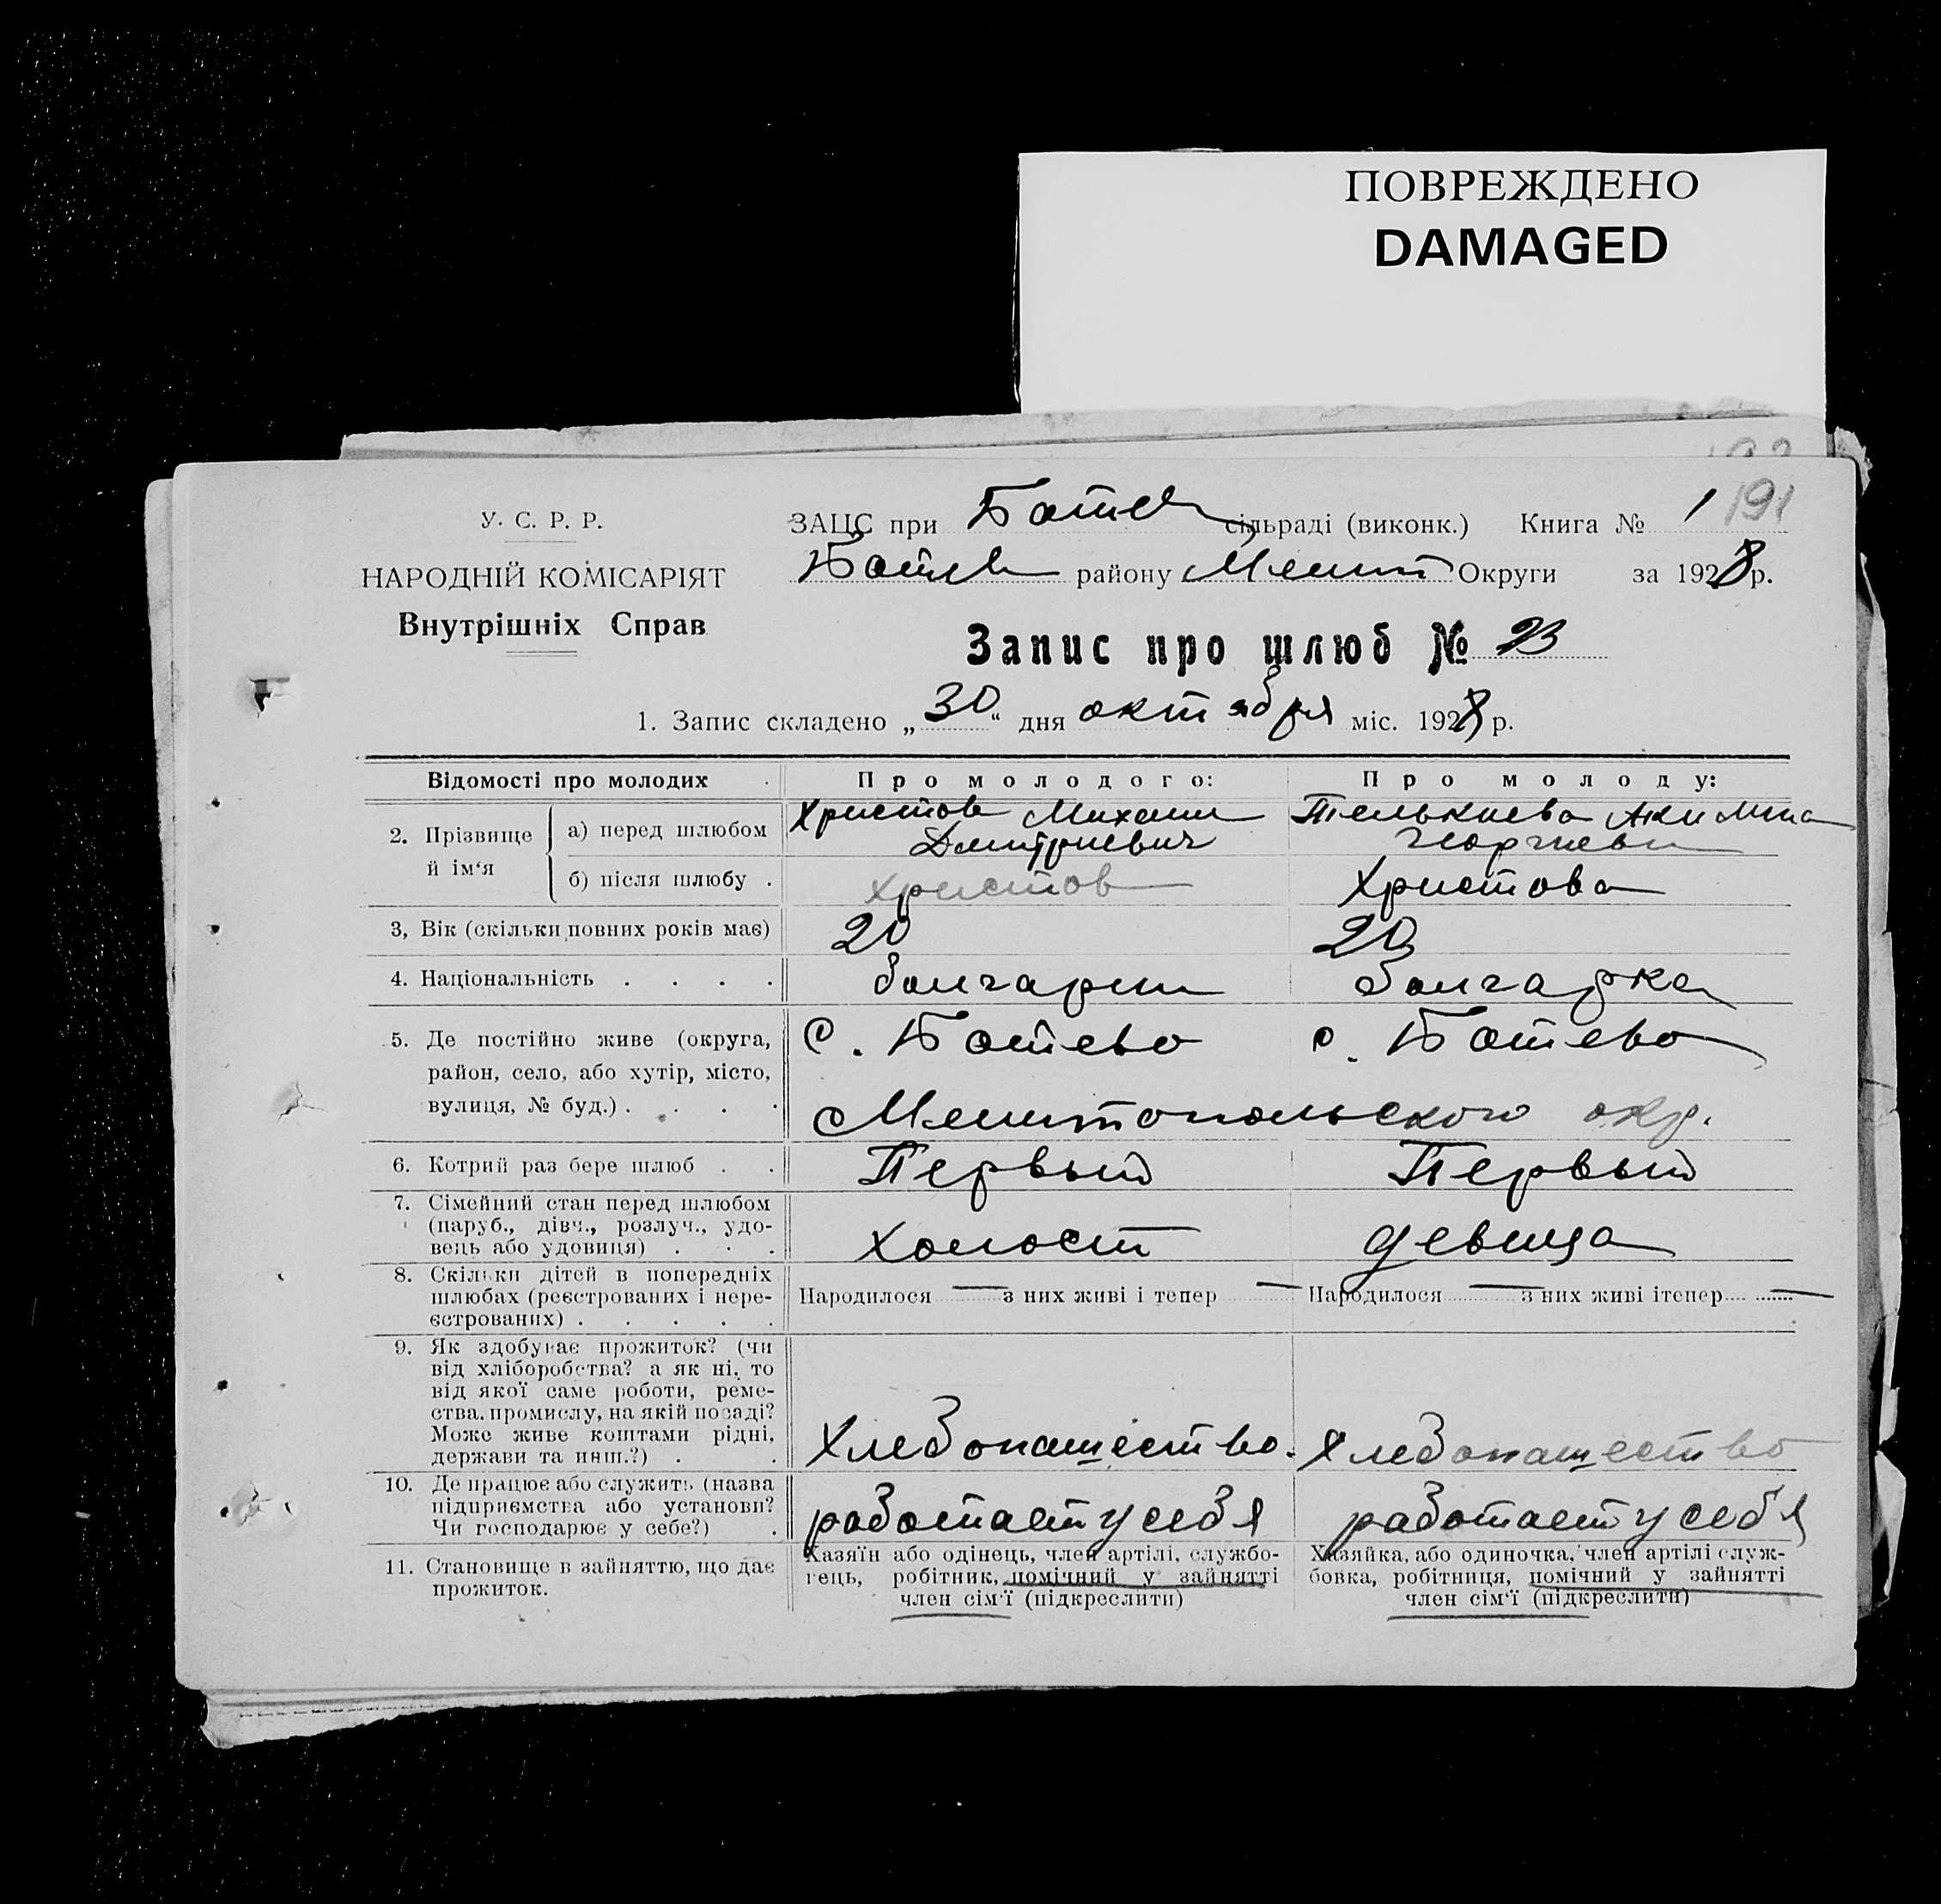 ПОВРЕЖДЕНО
DAMAGED
191
У. С. Р. Р.
НАРОДНІЙ КОМІСАРІЯТ
Внутрішніх Справ
ЗАЦС при Ботев сільраді (виконк.) Книга № 1
Ботев району Мелит Округи за 1928 р.
Запис про шлюб № 23
1. Запис складено „30“ дня октября міс. 1928 р.
Відомості про молодих Про молодого: Про молоду:
2. Прізвище й ім‘я
а) перед шлюбом Христов Михаил Дмитриевич Телькиева Акилина Георгиевн
б) після шлюбу . Христов Христова
3, Вік (скільки повних років має) 20 20
4. Національність . . . . болгарин болгарка
5. Де постійно живе (округа, с. Ботево с. Ботево
район, село, або хутір, місто,
вулиця, № буд.) . . . . Мелитопольского окр.
6. Котрий раз бере шлюб . . Первый Первый
7. Сімейний стан перед шлюбом
(паруб., дівч., розлуч., удо-
вець або удовиця) . . . холост девица
8. Скільки дітей в попередніх
шлюбах (реєстрованих і нере- Народилося — з них живі і тепер — Народилося — з них живі ітепер —
єстрованих) . . . . .
9. Як здобуває прожиток? (чи
від хліборобства? а як ні, то
від якої саме роботи, реме-
ства, промислу, на якій посаді?
Може живе коштами рідні,
держави та инш.?) . . Хлебопашество. Хлебопашество
10. Де працює або служить (назва
підприємства або установи?
Чи господарює у себе?) . работает у себя работает у себя
11. Становище в зайняттю, що дає
прожиток.
Хазяїн або одінець, член артілі, службо-
вець, робітник, помічний у зайнятті
член сім‘ї (підкреслити)
Хазяйка, або одиночка, член артілі служ-
бовка, робітниця, помічний у зайнятті
член сім‘ї (підкреслити)